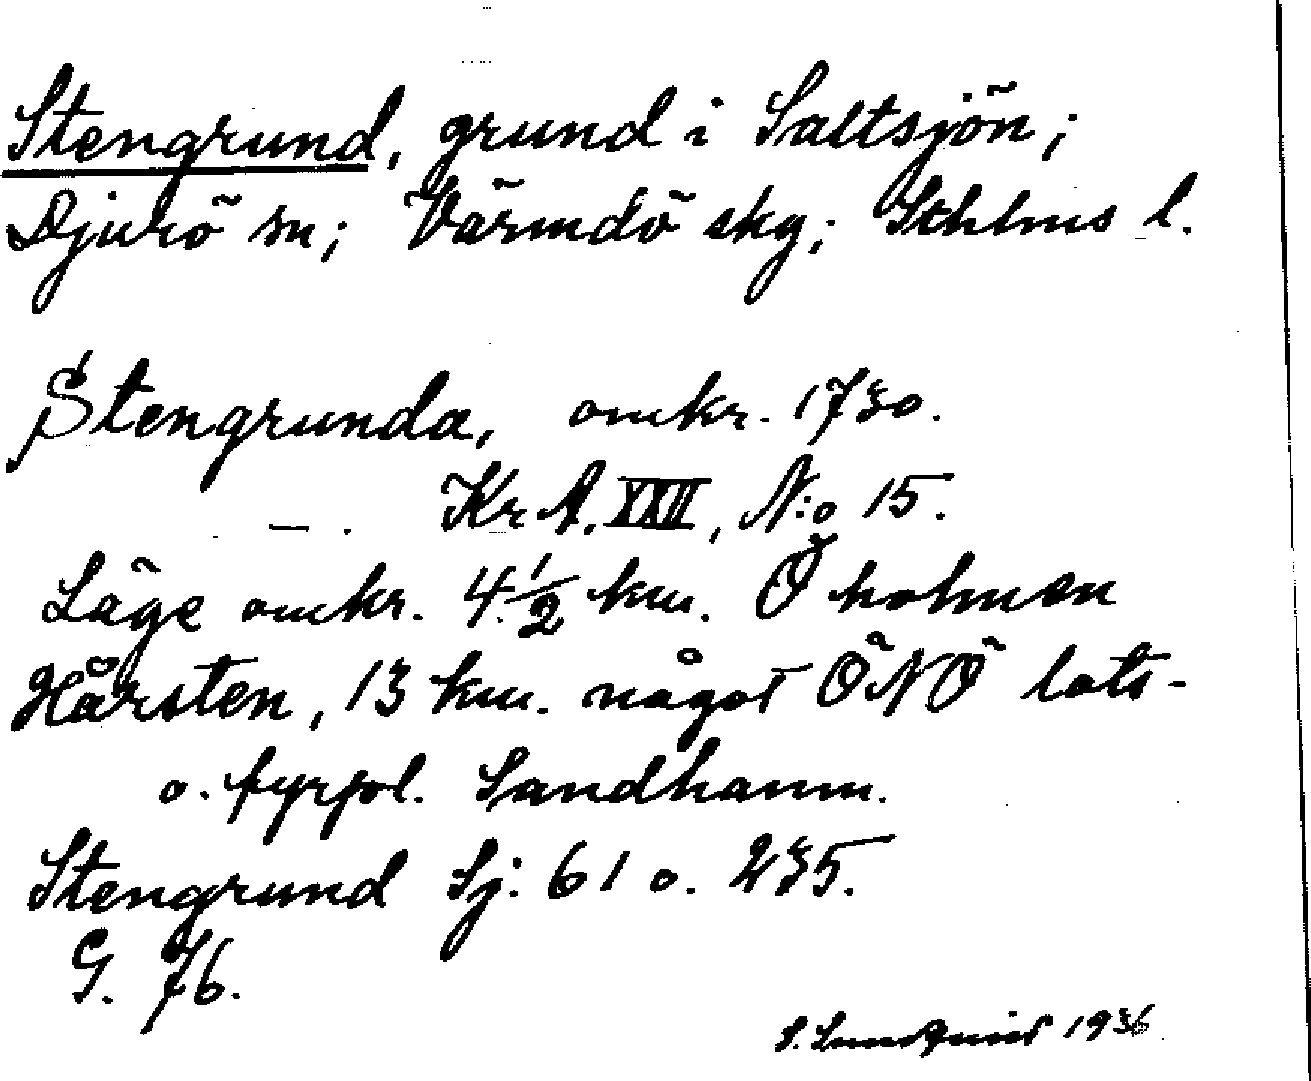 Stengrund, grund i Saltsjön;
Djurö sn; Värmdö skg; Sthlms l.
Stengrunda, omkr. 1730.
— . Kr A. XXII, N:o 15.
Läge omkr. 4 1/2 km. Ö holmen
Hårsten, 13 km. något ÖNÖ lots-
o. fyrpl. Sandhamn.
Stengrund Sj. 61 o. 235.
G. 76.
S. Lundqvist 1936